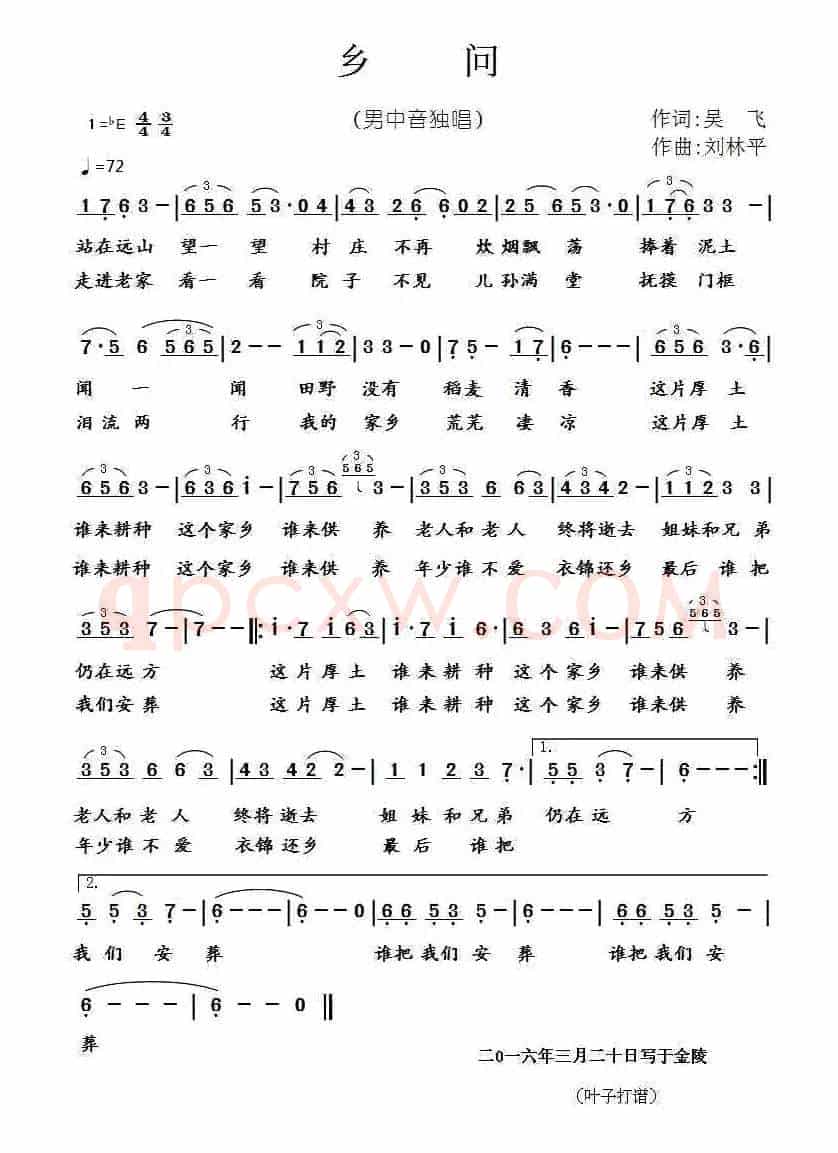 乡 问
1=♭E 4/4 3/4
(男中音独唱)
作词:吴 飞
作曲:刘林平
♩=72
站在远山 望一 望 村 庄 不再 炊烟飘 荡 捧着 泥土
走进老家 看一 看 院 子 不见 儿孙满 堂 抚摸 门框
闻 一 闻 田野 没有 稻麦 清 香 这片 厚 土
泪流 两 行 我的 家乡 荒芜 凄 凉 这片 厚 土
谁来耕种 这个家乡 谁来供 养 老人和 老 人 终将逝去 姐妹和兄弟
谁来耕种 这个家乡 谁来供 养 年少谁 不 爱 衣锦还乡 最后 谁把
仍在远方 这 片 厚 土 谁来 耕 种 这 个家 乡 谁来供 养
我们安葬 这 片 厚 土 谁来 耕 种 这 个家 乡 谁来供 养
1.
老人和 老 人 终将 逝去 姐 妹 和兄 弟 仍在 远 方
年少谁 不 爱 衣锦 还乡 最 后 谁 把
2.
我 们 安 葬 谁把 我们 安 葬 谁把 我们 安
葬
二0一六年三月二十日写于金陵
(叶子打谱)
qpcxw.COM